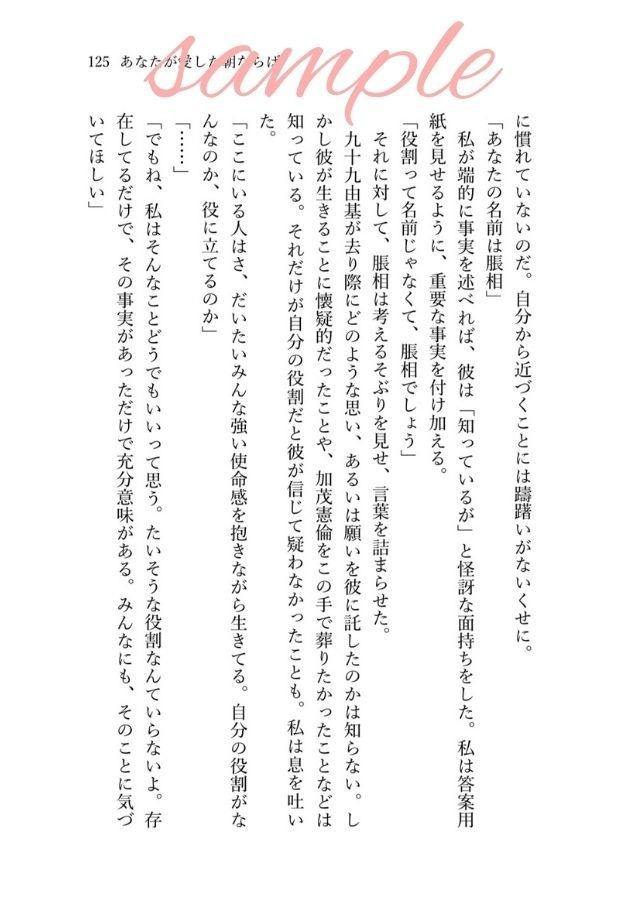 sample
125 あなたが愛した朝ならば
に慣れていないのだ。自分から近づくことには躊躇いがないくせに。
「あなたの名前は脹相」
私が端的に事実を述べれば、彼は「知っているが」と怪訝な面持ちをした。私は答案用
紙を見せるように、重要な事実を付け加える。
「役割って名前じゃなくて、脹相でしょう」
それに対して、脹相は考えるそぶりを見せ、言葉を詰まらせた。
九十九由基が去り際にどのような思い、あるいは願いを彼に託したのかは知らない。し
かし彼が生きることに懐疑的だったことや、加茂憲倫をこの手で葬りたかったことなどは
知っている。それだけが自分の役割だと彼が信じて疑わなかったことも。私は息を吐い
た。
「ここにいる人はさ、だいたいみんな強い使命感を抱きながら生きてる。自分の役割がな
んなのか、役に立てるのか」
「……」
「でもね、私はそんなことどうでもいいって思う。たいそうな役割なんていらないよ。存
在してるだけで、その事実があっただけで充分意味がある。みんなにも、そのことに気づ
いてほしい」